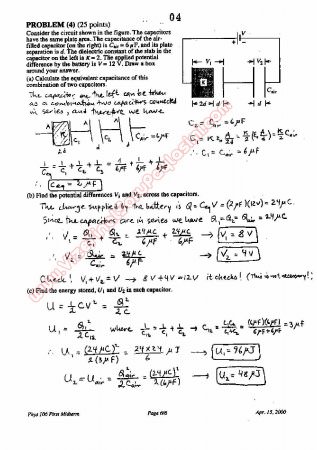 04
PROBLEM (4) (25 points)
Consider the circuit shown in the figure. The capacitors
have the same plate area. The capacitance of the air-
filled capacitor (on the right) is Cair = 6 μF, and its plate
separation is d. The dielectric constant of the slab in the
capacitor on the left is K = 2. The applied potential
difference by the battery is V = 12 V. Draw a box
around your answer.
(a) Calculate the equivalent capacitance of this
combination of two capacitors.
The capacitor on the left can be taken
as a combination two capacitors connected
in series, and therefore we have
V
V₁
V₂
K
2d
d
d
A
C₁
A
C₂
A
C₃ = 6μF
K
2d
d
C₂ = Cair = 6μF
C₁ = K ε₀ A/2d = K/2 (ε₀ A/d) = K/2 Cair
∴ C₁ = Cair = 6μF
1/Ceq = 1/C₁ + 1/C₂ + 1/C₃ = 1/6μF + 1/6μF + 1/6μF
∴ Ceq = 2μF
(b) Find the potential differences V₁ and V₂, across the capacitors.
The charge supplied by the battery is Q = Ceq V = (2μF)(12V) = 24μC
Since the capacitors are in series we have Q₁ = Q₂ = Qair = 24μC
∴ V₁ = Q₁/C₁ + Q₂/C₂ = 24μC/6μF + 24μC/6μF → V₁ = 8V
∴ V₂ = Qair/Cair = 24μC/6μF → V₂ = 4V
Check! V₁ + V₂ = V → 8V + 4V = 12V it checks! (This is not necessary!)
(c) Find the energy stored, U₁ and U₂ in each capacitor.
U = 1/2 CV² = Q²/2C
U₁ = Q₁²/2C₁₂ where 1/C₁₂ = 1/C₁ + 1/C₂ → C₁₂ = C₁C₂/C₁+C₂ = (6μF)(6μF)/6μF+6μF = 3μF
∴ U₁ = (24μC)²/2(3μF) = 24×24/6 μJ → U₁ = 96μJ
U₂ = Uair = Qair²/2Cair = (24μC)²/2(6μF) → U₂ = 48μJ
Phys 106 First Midterm
Page 6/6
Apr. 15, 2000